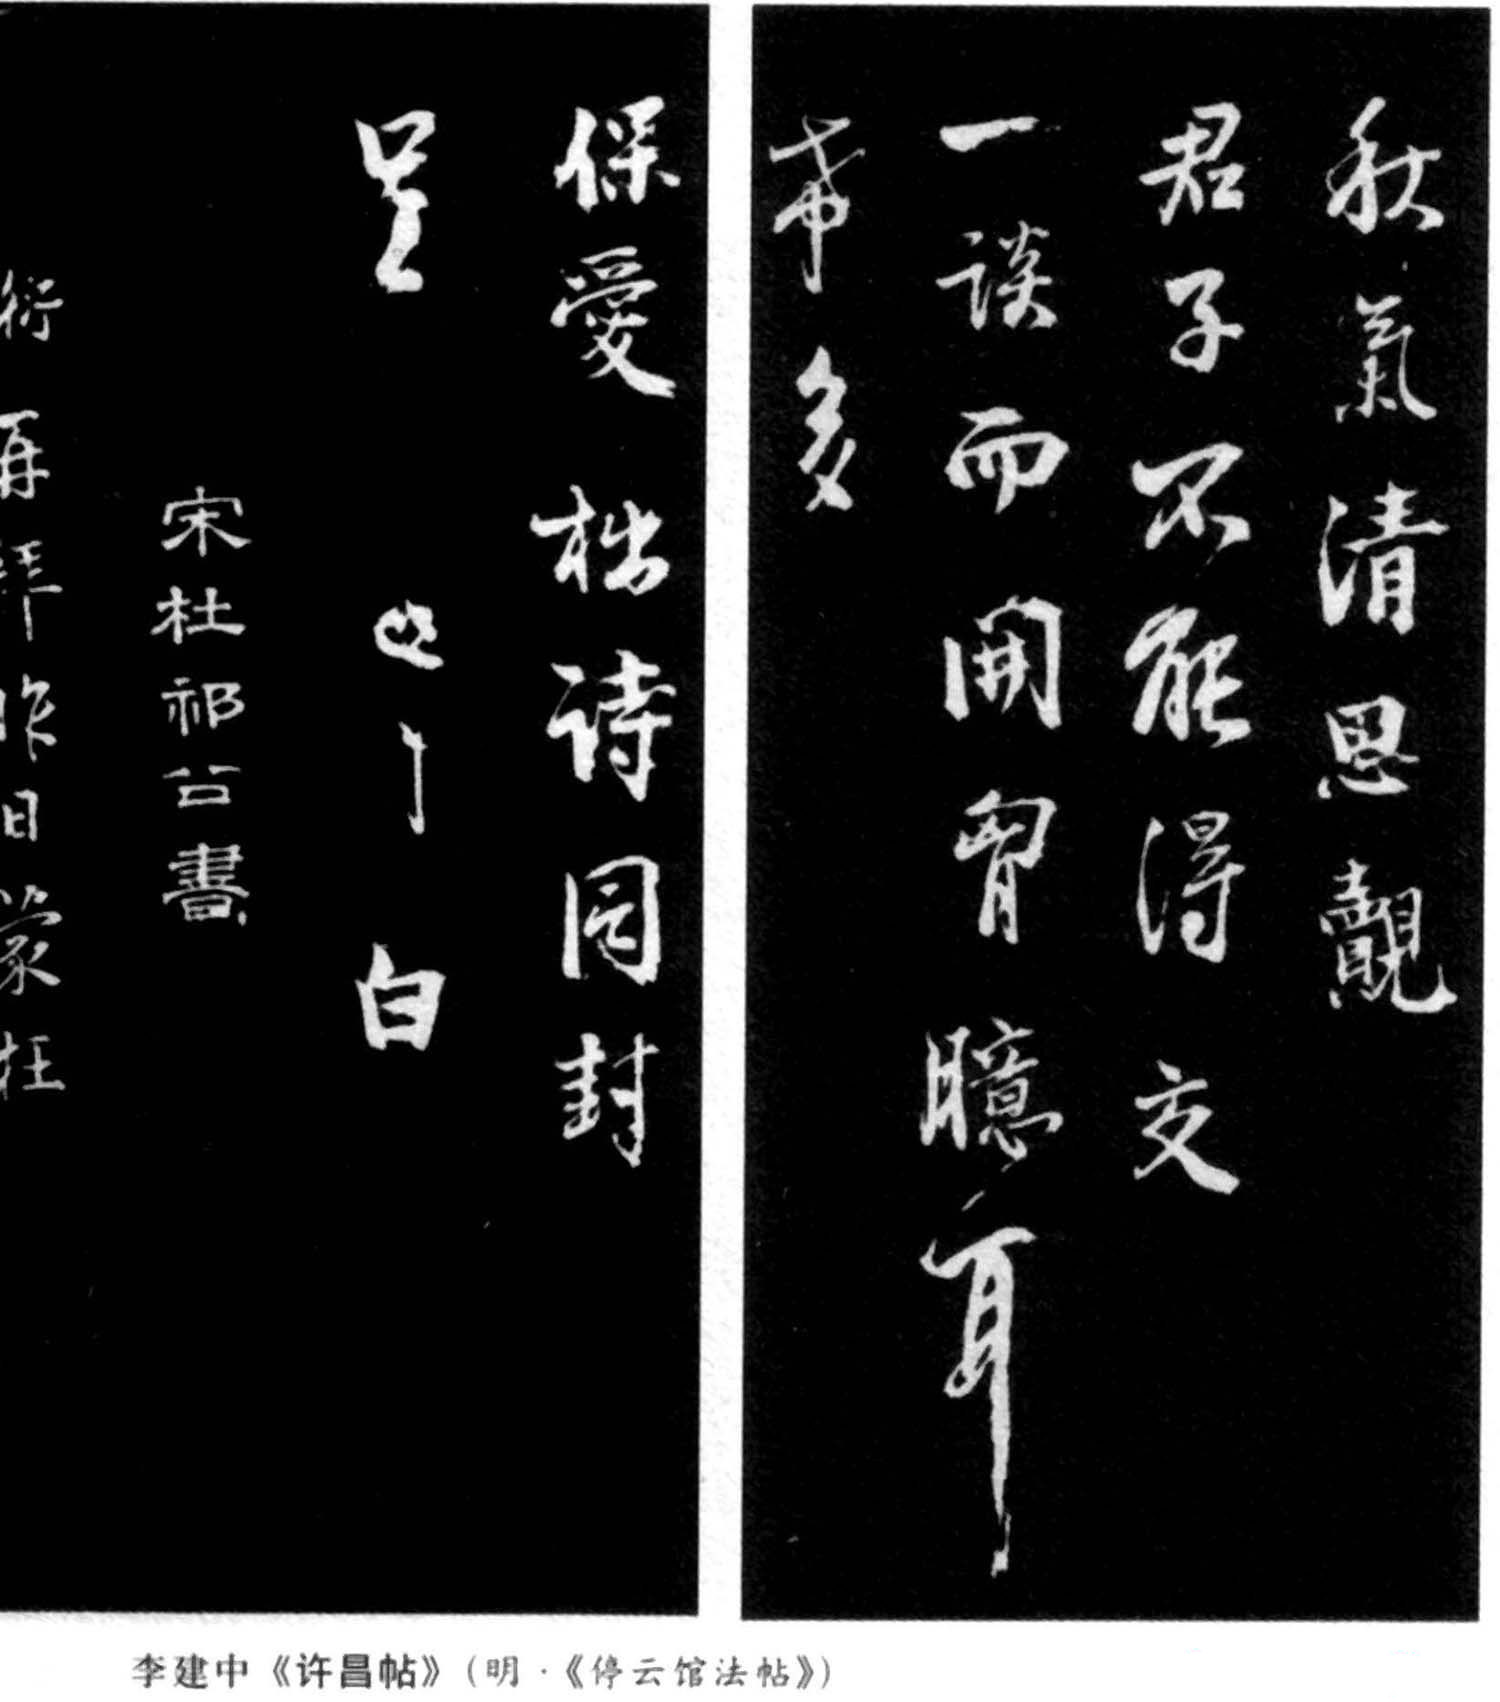 秋氣清思觀
君子不能得交
一談而開胷臆耳
希多
保愛 拙诗同封
呈 白
宋杜祁公書
衍再拜昨日蒙枉
李建中《许昌帖》(明·《停云馆法帖》)